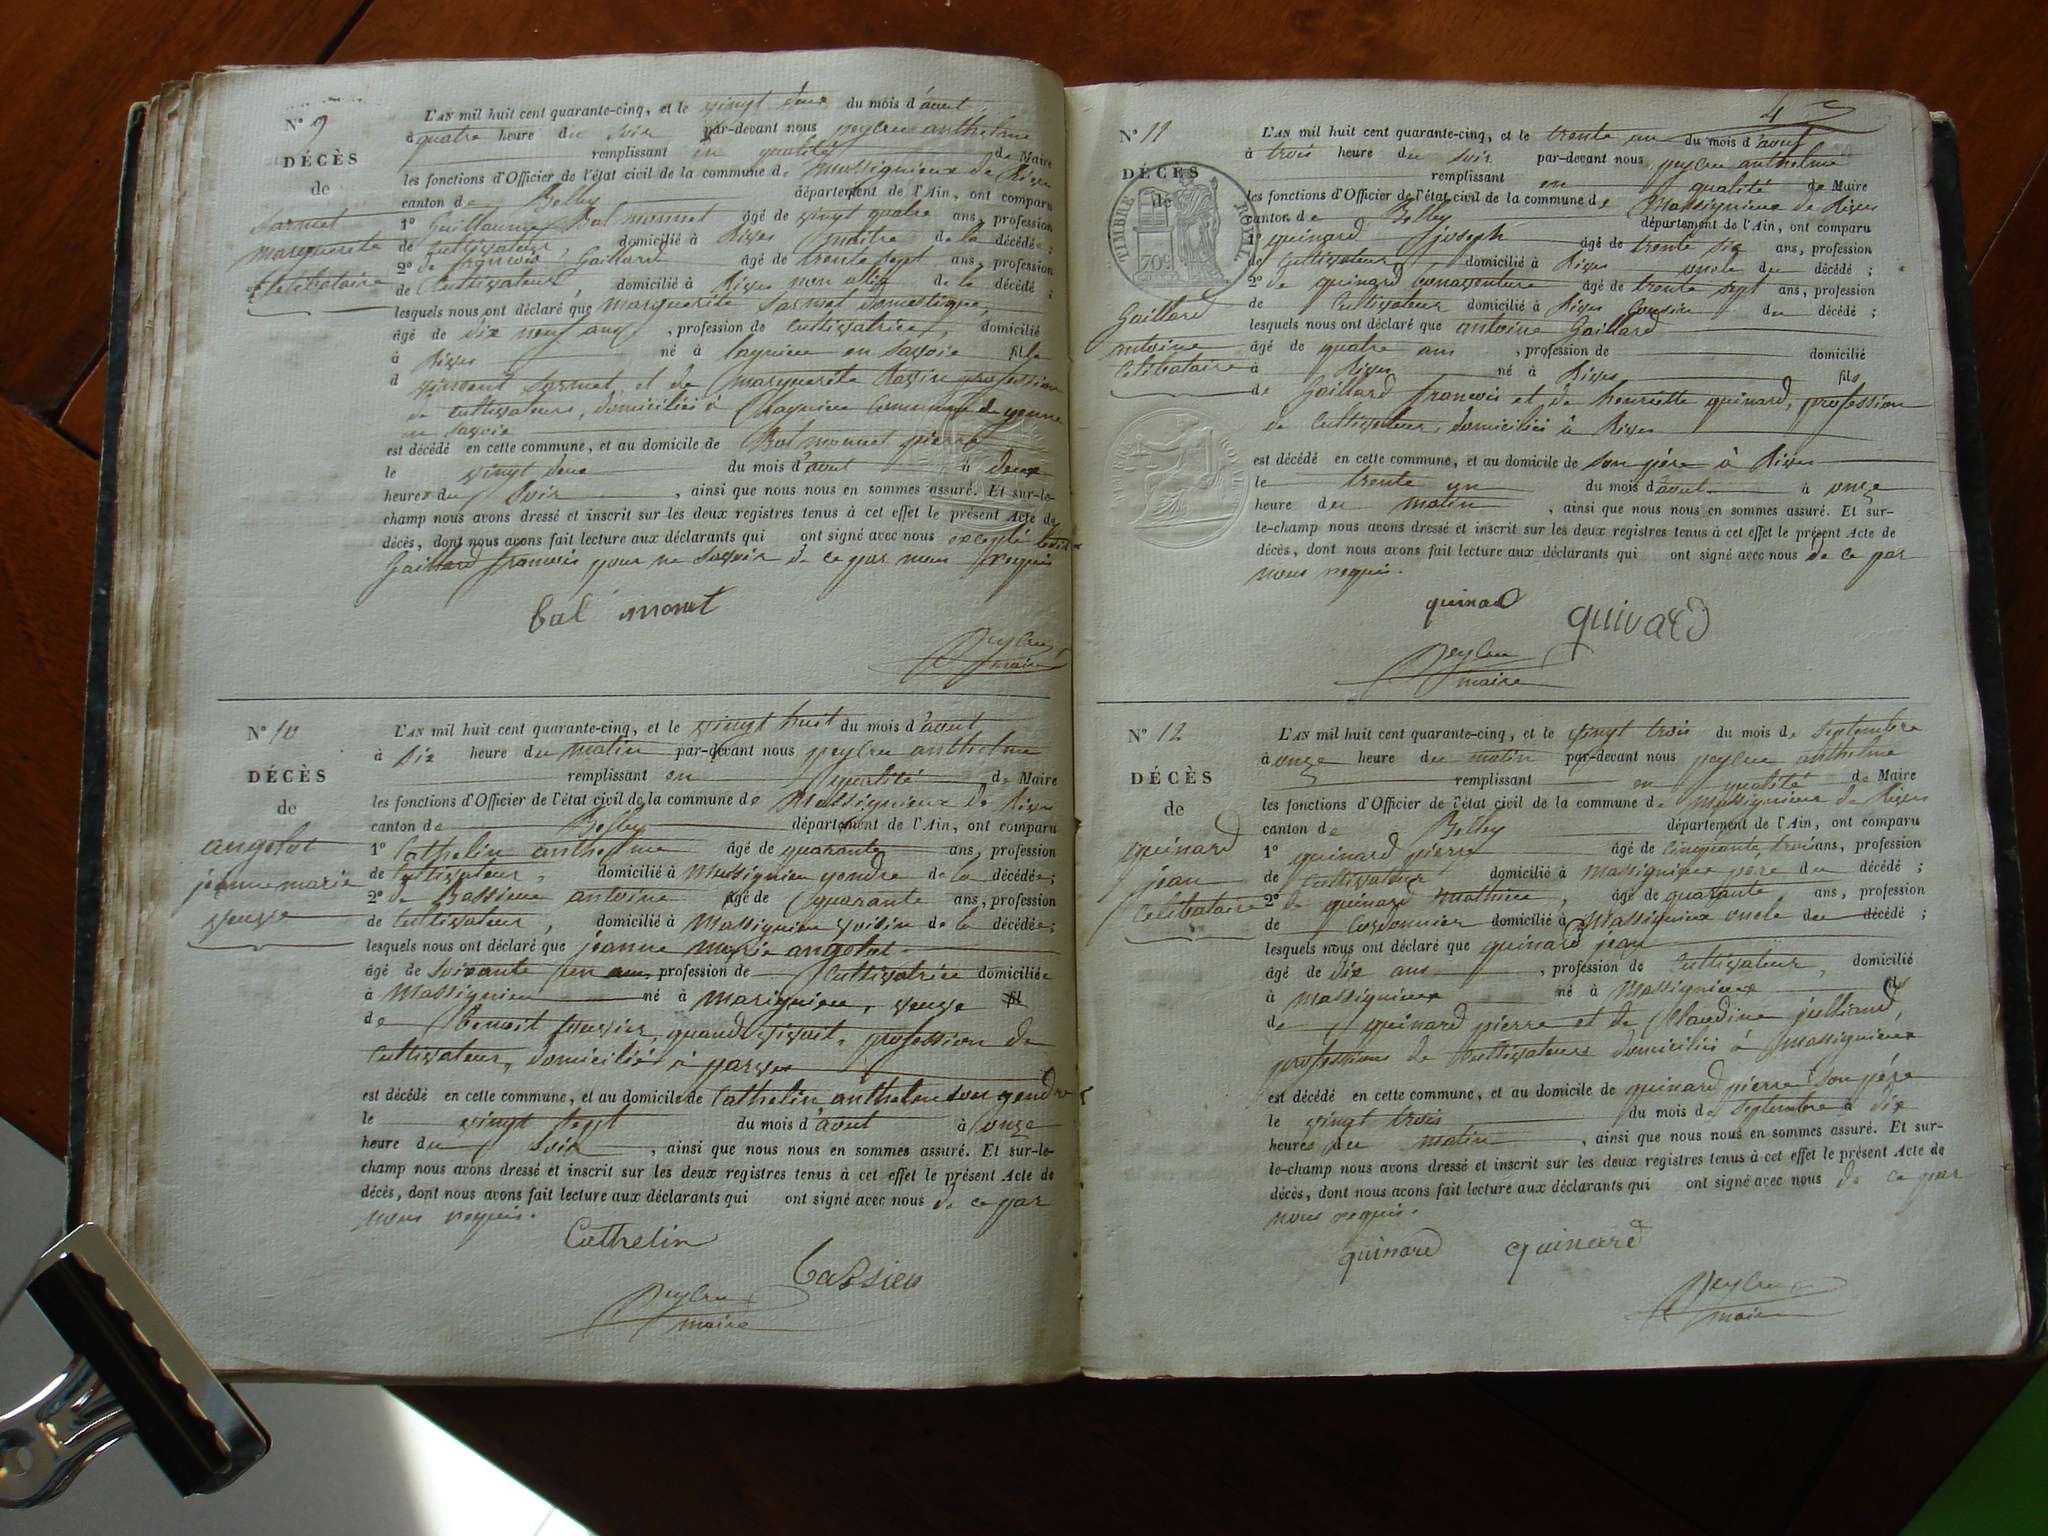 N° 9
DÉCÈS
de
Sarmet
marguerite
Celibataire
L'AN mil huit cent quarante-cinq, et le vingt deux du mois d'aout
à quatre heure du soir par-devant nous peylru anthelme
remplissant en qualité de Maire
les fonctions d'Officier de l'état civil de la commune de Massignieux de Rives
canton de Belley département de l'Ain, ont comparu
1° Guillaume Bal monnet âgé de vingt quatre ans, profession
de Cultivateur, domicilié à Rives maitre de la décédée;
2° de francois Gaillard âgé de trente sept ans, profession
de Cultivateur, domicilié à Rives non allié de la décédé;
lesquels nous ont déclaré que marguerite Sarmet domestique,
âgé de dix neuf ans, profession de Cultivatrice, domicilié
à Rives né à lagnieu en Savoie fille
d vincent Sarmet, et de marguerite profession
de Cultivateurs, domiciliés à Commune de yenne
en Savoie
est décédé en cette commune, et au domicile de Bal monnet pierre
le vingt deux du mois d'aout à deux
heures du Soir, ainsi que nous nous en sommes assuré. Et sur-le-
champ nous avons dressé et inscrit sur les deux registres tenus à cet effet le présent Acte de
décès, dont nous avons fait lecture aux déclarants qui ont signé avec nous excepté ledit
Gaillard francois pour ne Savoir de ce par nous requis
bal monet
peylru
maire
N° 10
DÉCÈS
de
angelot
jeanne marie
veuve
L'AN mil huit cent quarante-cinq, et le vingt huit du mois d'aout
à six heure du matin par-devant nous peylru anthelme
remplissant en qualité de Maire
les fonctions d'Officier de l'état civil de la commune de Massignieux de Rives
canton de Belley département de l'Ain, ont comparu
1° Cathelin anthelme âgé de quarante ans, profession
de Cultivateur, domicilié à Massignieu gendre de la décédée;
2° de Bassieux antoine âgé de quarante ans, profession
de Cultivateur, domicilié à Massignieu voisin de la décédée;
lesquels nous ont déclaré que jeanne marie angelot
âgé de soixante un ans, profession de Cultivatrice domiciliée
à Massignieu né à Marignieu, veuve fil
de benoit quand vivait, profession de
Cultivateur, domiciliés à parves
est décédé en cette commune, et au domicile de Cathelin anthelme son gendre
le vingt sept du mois d'aout à onze
heure du Soir, ainsi que nous nous en sommes assuré. Et sur-le-
champ nous avons dressé et inscrit sur les deux registres tenus à cet effet le présent Acte de
décès, dont nous avons fait lecture aux déclarants qui ont signé avec nous de ce par
nous requis.
Cathelin
bassieu
peylru
maire
4
N° 11
DÉCÈS
de
TIMBRE ROYAL
70c
Gaillard
antoine
Celibataire
L'AN mil huit cent quarante-cinq, et le trente un du mois d'aout
à trois heure du soir par-devant nous peylru anthelme
remplissant en qualité de Maire
les fonctions d'Officier de l'état civil de la commune de Massignieux de Rives
canton de Belley département de l'Ain, ont comparu
1° quinard joseph âgé de trente six ans, profession
de Cultivateur, domicilié à Rives oncle du décédé;
2° de quinard bonaventure âgé de trente sept ans, profession
de Cultivateur domicilié à Rives Cousin du décédé;
lesquels nous ont déclaré que antoine Gaillard
âgé de quatre ans, profession de domicilié
à Rives né à Rives fils
de Gaillard francois et de henriette quinard, profession
de Cultivateur, domiciliés à Rives
est décédé en cette commune, et au domicile de son père à Rives
le trente un du mois d'aout à onze
heure du matin, ainsi que nous nous en sommes assuré. Et sur-
le-champ nous avons dressé et inscrit sur les deux registres tenus à cet effet le présent Acte de
décès, dont nous avons fait lecture aux déclarants qui ont signé avec nous de ce par
nous requis.
quinard
quinard
peylru
maire
N° 12
DÉCÈS
de
quinard
jean
Celibataire
L'AN mil huit cent quarante-cinq, et le vingt trois du mois de Septembre
à onze heure du matin par-devant nous peylru anthelme
remplissant en qualité de Maire
les fonctions d'Officier de l'état civil de la commune de Massignieux de Rives
canton de Belley département de l'Ain, ont comparu
1° quinard pierre âgé de cinquante trois ans, profession
de Cultivateur domicilié à Massignieux père du décédé;
2° de quinard mathieu, âgé de quarante ans, profession
de Cordonnier domicilié à Massignieux oncle du décédé;
lesquels nous ont déclaré que quinard jean
âgé de dix ans, profession de Cultivateur, domicilié
à Massignieux né à Massignieux fils
de quinard pierre et de Claudine julliand,
professions de Cultivateurs domiciliés à Massignieux
est décédé en cette commune, et au domicile de quinard pierre son père
le vingt trois du mois de Septembre à dix
heures du matin, ainsi que nous nous en sommes assuré. Et sur-
le-champ nous avons dressé et inscrit sur les deux registres tenus à cet effet le présent Acte de
décès, dont nous avons fait lecture aux déclarants qui ont signé avec nous de ce par
nous requis.
quinard quinard
peylru
maire